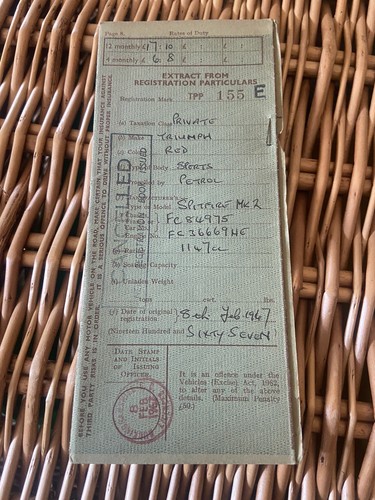 Page 8. Rates of Duty
12 monthly £17:10 £ : £ :
4 monthly £ 6. 8 £ : £ :
EXTRACT FROM
REGISTRATION PARTICULARS
Registration Mark TPP 155 E
(a) Taxation Class PRIVATE
(b) Make TRIUMPH
(c) Colour RED
Type of Body SPORTS
Propelled by PETROL
Type or Model SPITFIRE MK 2
FC 84975
Engine No. FC 36669HE
1147cc
(h) Seating Capacity
(i) Unladen Weight
tons cwt. lbs.
(j) Date of original
registration 8th Feb 1967
(Nineteen Hundred and SIXTY SEVEN
DATE STAMP
AND INITIALS
OF ISSUING
OFFICER.
It is an offence under the
Vehicles (Excise) Act, 1962,
to alter any of the above
details. (Maximum Penalty
£50.)
8
FEB
CANCELLED
REGISTRATION BOOK ISSUED
BEFORE YOU USE ANY MOTOR VEHICLE ON THE ROAD, MAKE CERTAIN THAT YOUR INSURANCE AGAINST
THIRD PARTY RISKS IS IN ORDER. IT IS A SERIOUS OFFENCE TO DRIVE WITHOUT PROPER INSURANCE.